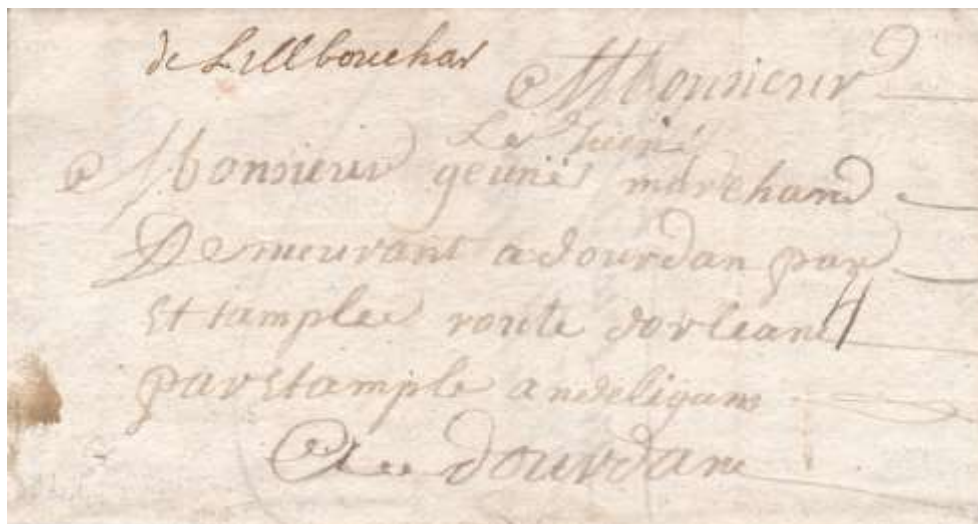 de Lillbouchar
Monsieur
Le Jeune
Monsieur geuné marchand
Demeurant a dourdan par
Ettample route dorlean 4
par Etample andeligans
A dourdan